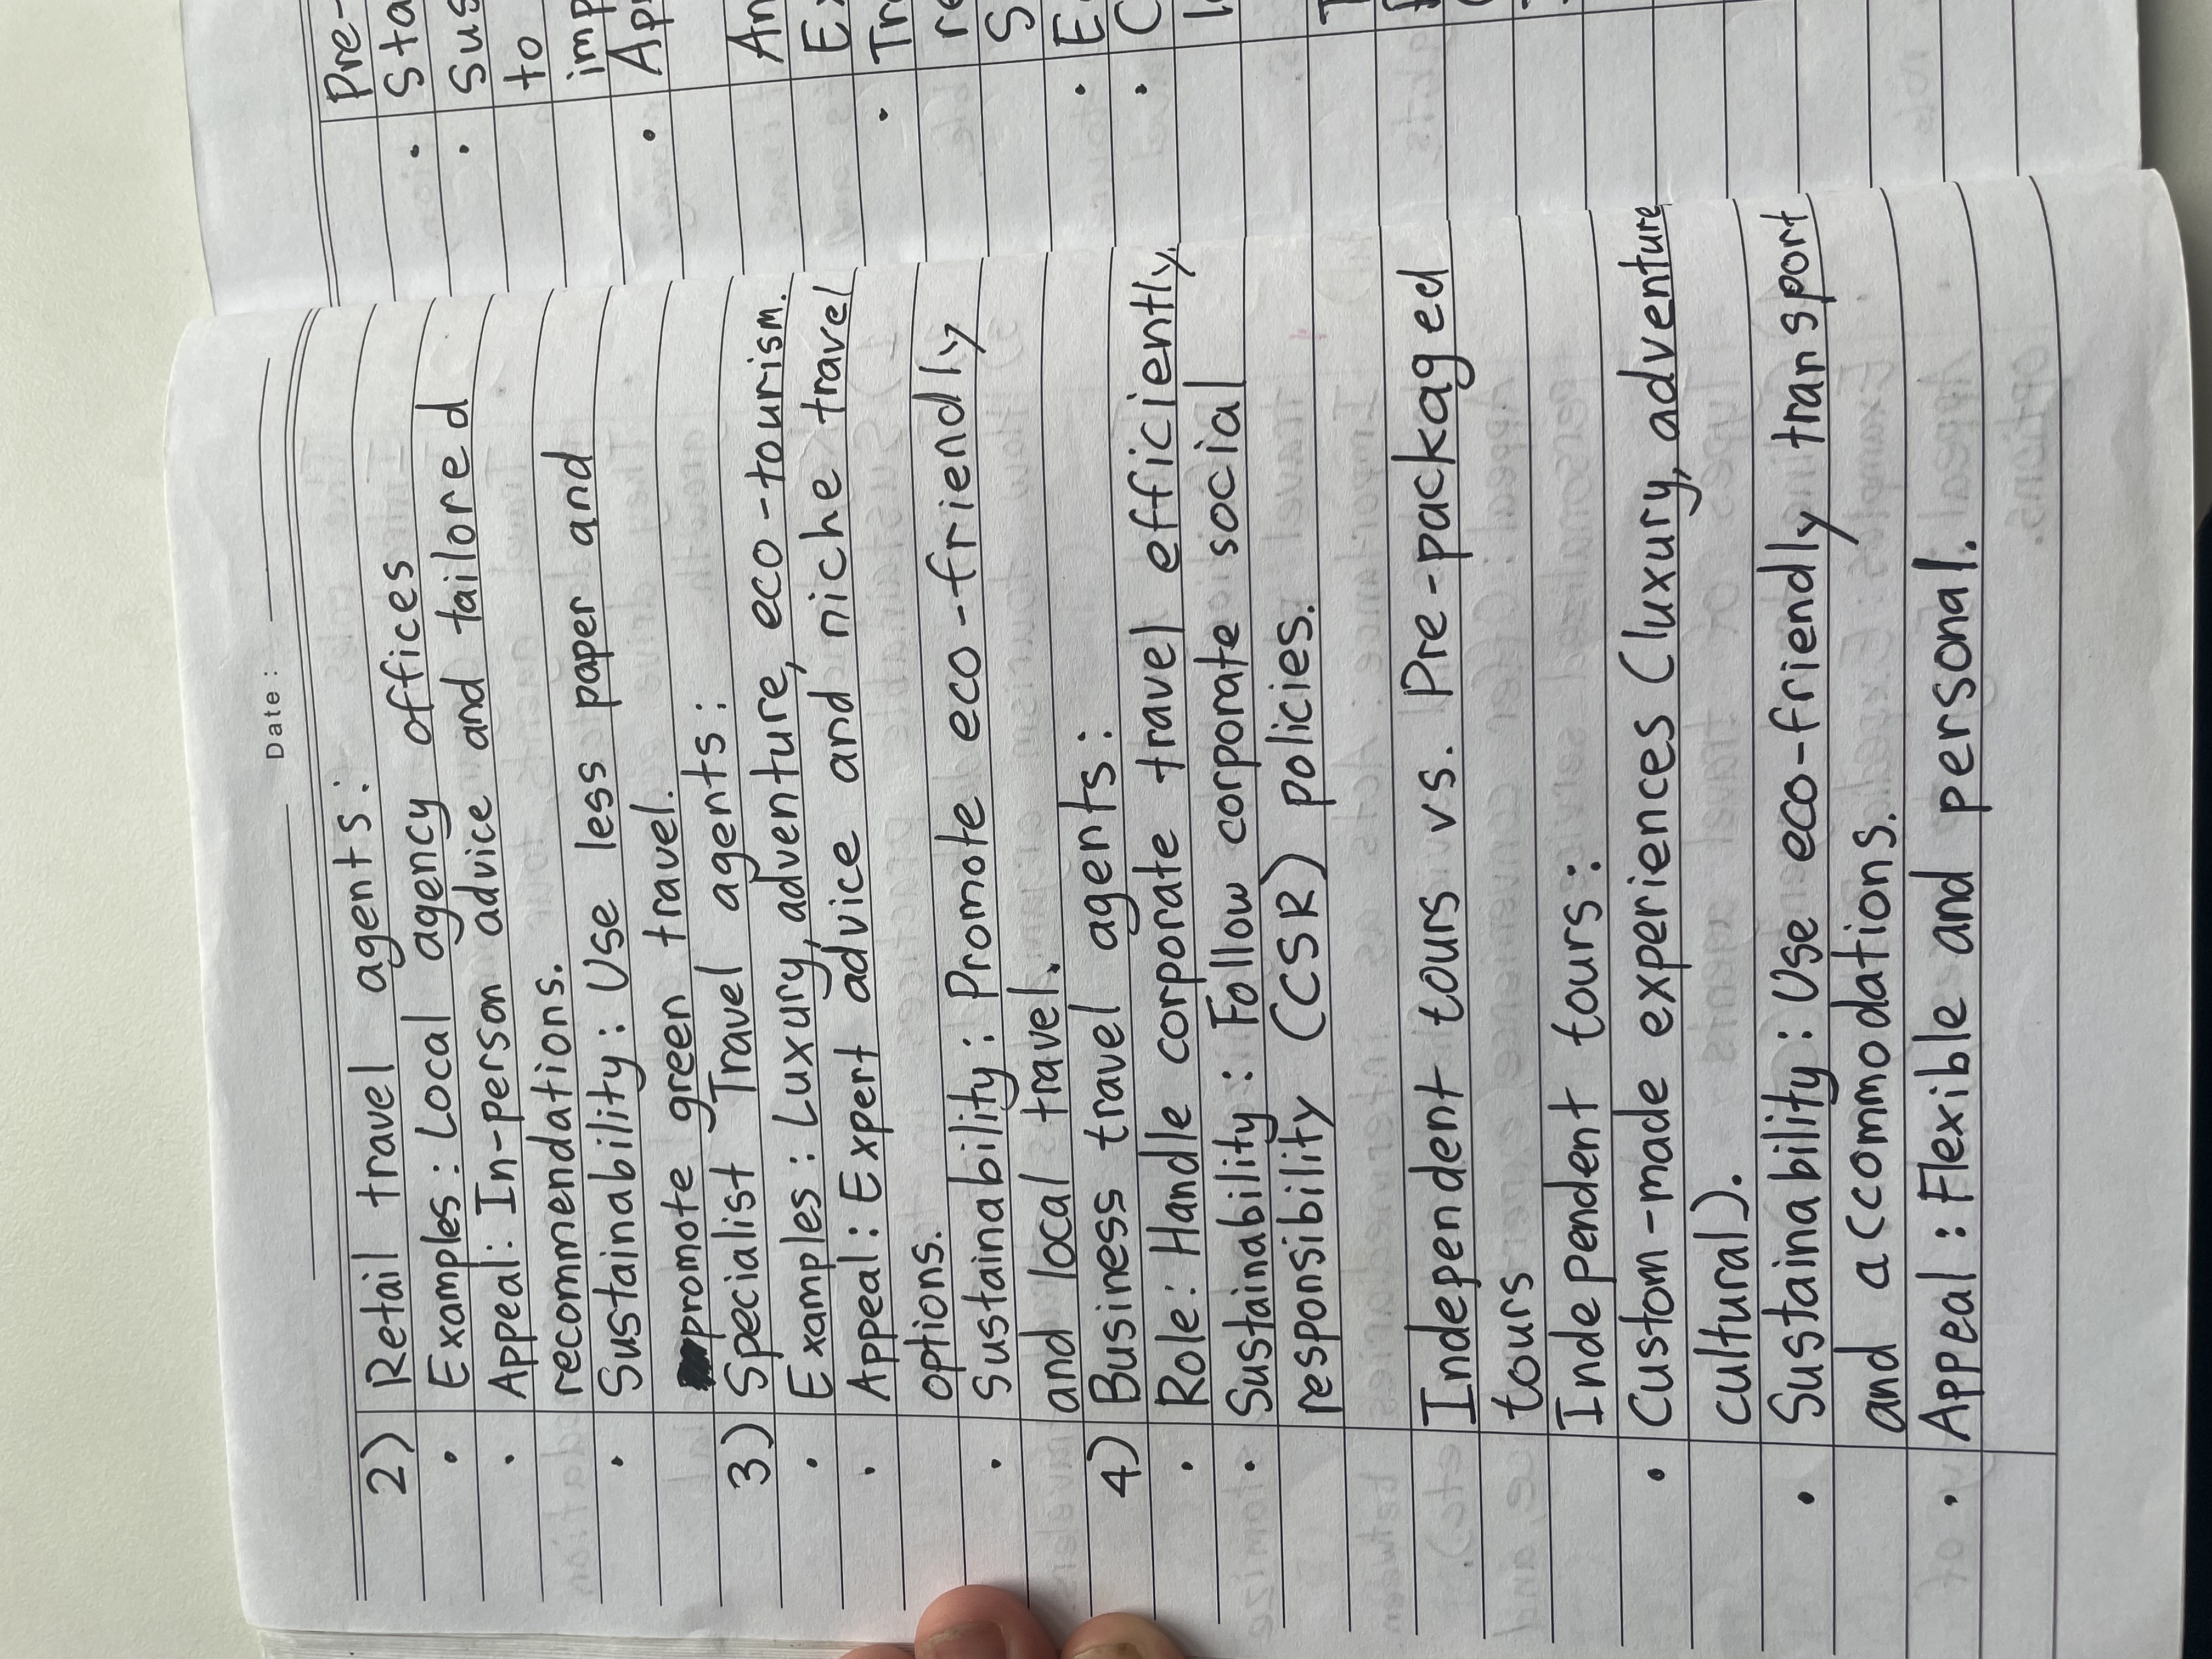 Date :
2) Retail travel agents :
• Examples : Local agency offices
• Appeal : In-person advice and tailored
recommendations.
• Sustainability : Use less paper and
promote green travel.
3) Specialist Travel agents :
• Examples : Luxury, adventure, eco-tourism.
• Appeal : Expert advice and niche travel
options.
• Sustainability : Promote eco-friendly
and local travel.
4) Business travel agents :
• Role : Handle corporate travel efficiently.
• Sustainability : Follow corporate social
responsibility (CSR) policies.
Independent tours vs. Pre-packaged
tours
Independent tours :
• Custom-made experiences (luxury, adventure
cultural).
• Sustainability : Use eco-friendly transport
and accommodations.
• Appeal : Flexible and personal.
Pre-
• Sta
• Sus
to
imp
• Ap
An
Ex
• Tr
re
S
• E
• C